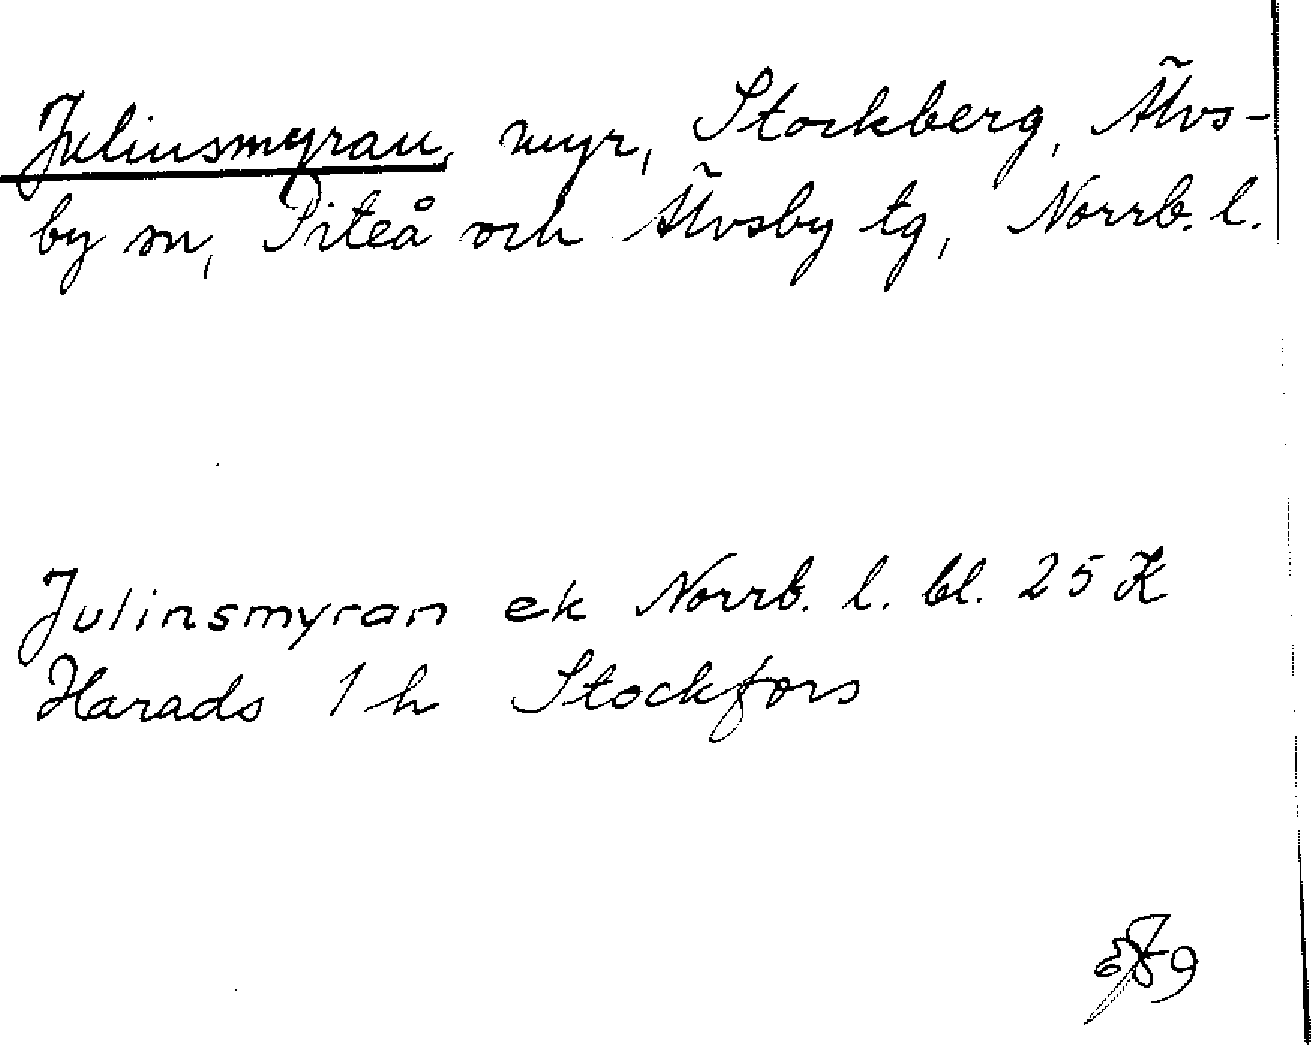 Julinsmyran, myr, Stockberg, Älvs-
by sn, Piteå och Älvsby tg, Norrb. l.
Julinsmyran ek Norrb. l. bl. 25 K
Harads 1 h Stockfors